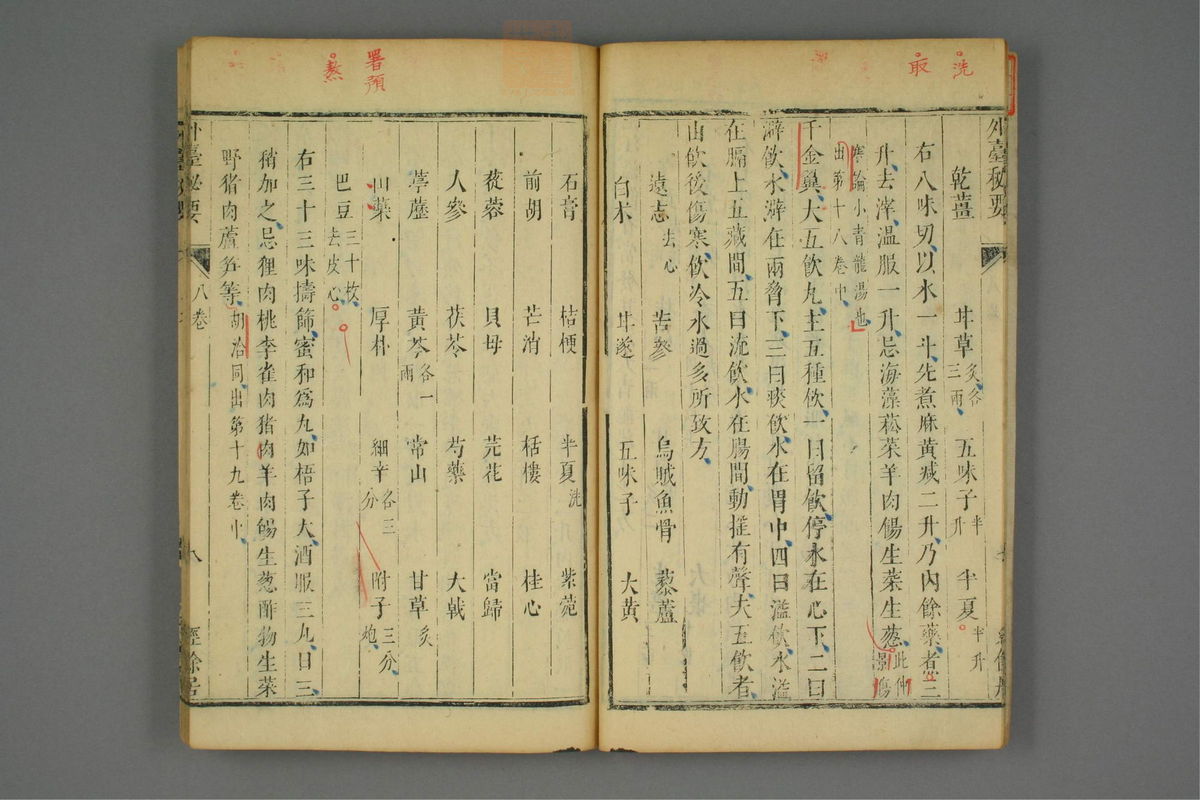 洗
取
外臺秘要
乾薑 甘草炙各三兩 五味子半升 半夏半升
右八味切以水一斗先煮麻黃減二升乃內餘藥煮三
升去滓溫服一升忌海藻菘菜羊肉餳生菜生葱此仲景傷
寒論小青龍湯也出第十八卷中
千金翼大五飲丸主五種飲一曰留飲停水在心下二曰
澼飲水澼在兩脅下三曰痰飲水在胃中四曰溢飲水溢
在膈上五藏間五曰流飲水在腸間動搖有聲夫五飲者
由飲後傷寒飲冷水過多所致方
遠志去心 苦參 烏賊魚骨 藜蘆
白朮 甘遂 五味子 大黃
石膏 桔梗 半夏洗 紫菀
前胡 芒消 栝樓 桂心
蓯蓉 貝母 芫花 當歸
人參 茯苓 芍藥 大戟
葶藶 黃芩各一兩 常山 甘草炙
山藥 厚朴 細辛各三分 附子三分炮
巴豆三十枚去皮心
右三十三味擣篩蜜和爲丸如梧子大酒服三丸日三
稍加之忌狸肉桃李雀肉猪肉羊肉餳生葱酢物生菜
野猪肉蘆笋等胡洽同出第十九卷中
外臺秘要
八卷
八
經餘居
署預
熬